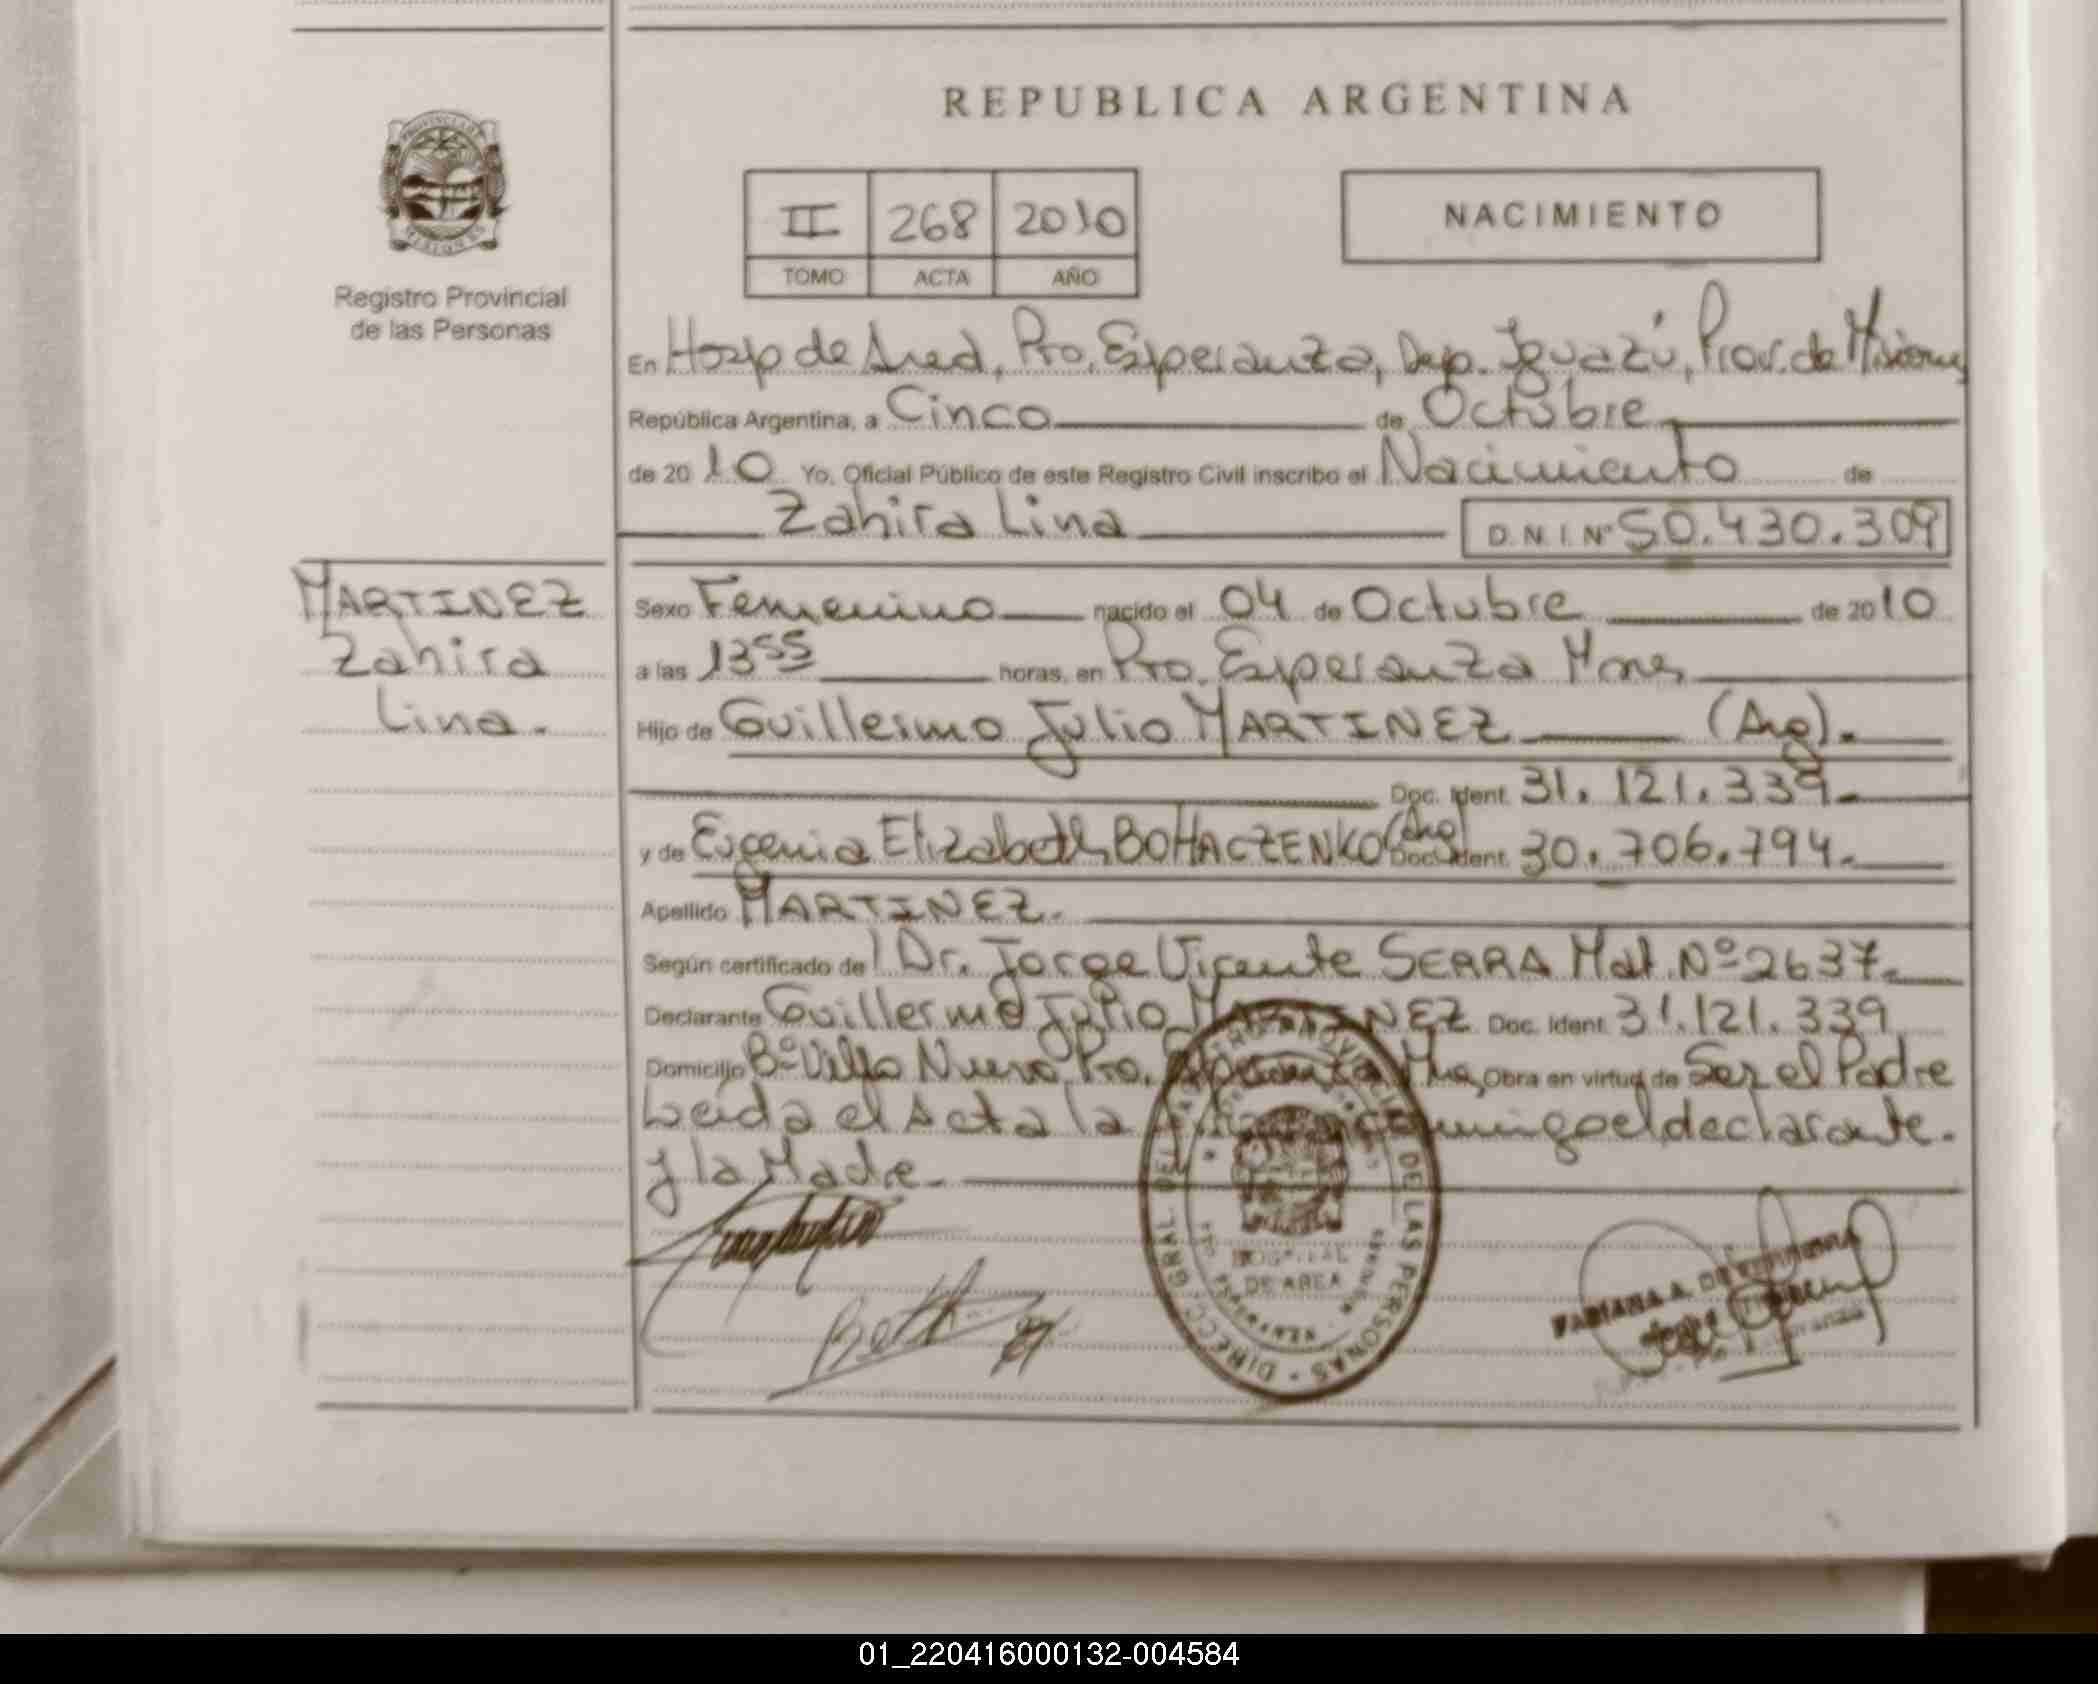 REPUBLICA ARGENTINA
PROVINCIA DE
MISIONES
Registro Provincial
de las Personas
II 268 2010
TOMO ACTA AÑO
NACIMIENTO
En Hosp de Area, Pto. Esperanza, Dep. Iguazú, Prov. de Misiones
República Argentina, a Cinco de Octubre
de 20 10 Yo, Oficial Público de este Registro Civil inscribo el Nacimiento de
Zahira Lina D.N.I. Nº 50.430.309
MARTINEZ
Zahira
Lina.
Sexo Femenino nacido el 04 de Octubre de 20 10
a las 13 55 horas, en Pto. Esperanza Mnes
Hijo de Guillermo Julio MARTINEZ (Arg).
Doc. Ident. 31.121.339.
y de Eugenia Elizabeth BOHACZENKO (Arg) Doc. Ident. 30.706.794.
Apellido MARTINEZ.
Según certificado de l Dr. Jorge Vicente SERRA Mat. Nº 2637.
Declarante Guillermo Julio MARTINEZ Doc. Ident. 31.121.339
Domicilio Bº Villa Nueva Pto. Esperanza Obra en virtud de Ser el Padre
Leida el Acta la conmigo el declarante.
y la Madre.
DIRECC. GRAL. DEL REGISTRO PROVINCIAL DE LAS PERSONAS
HOSPITAL
DE AREA
FABIANA A.
01_220416000132-004584